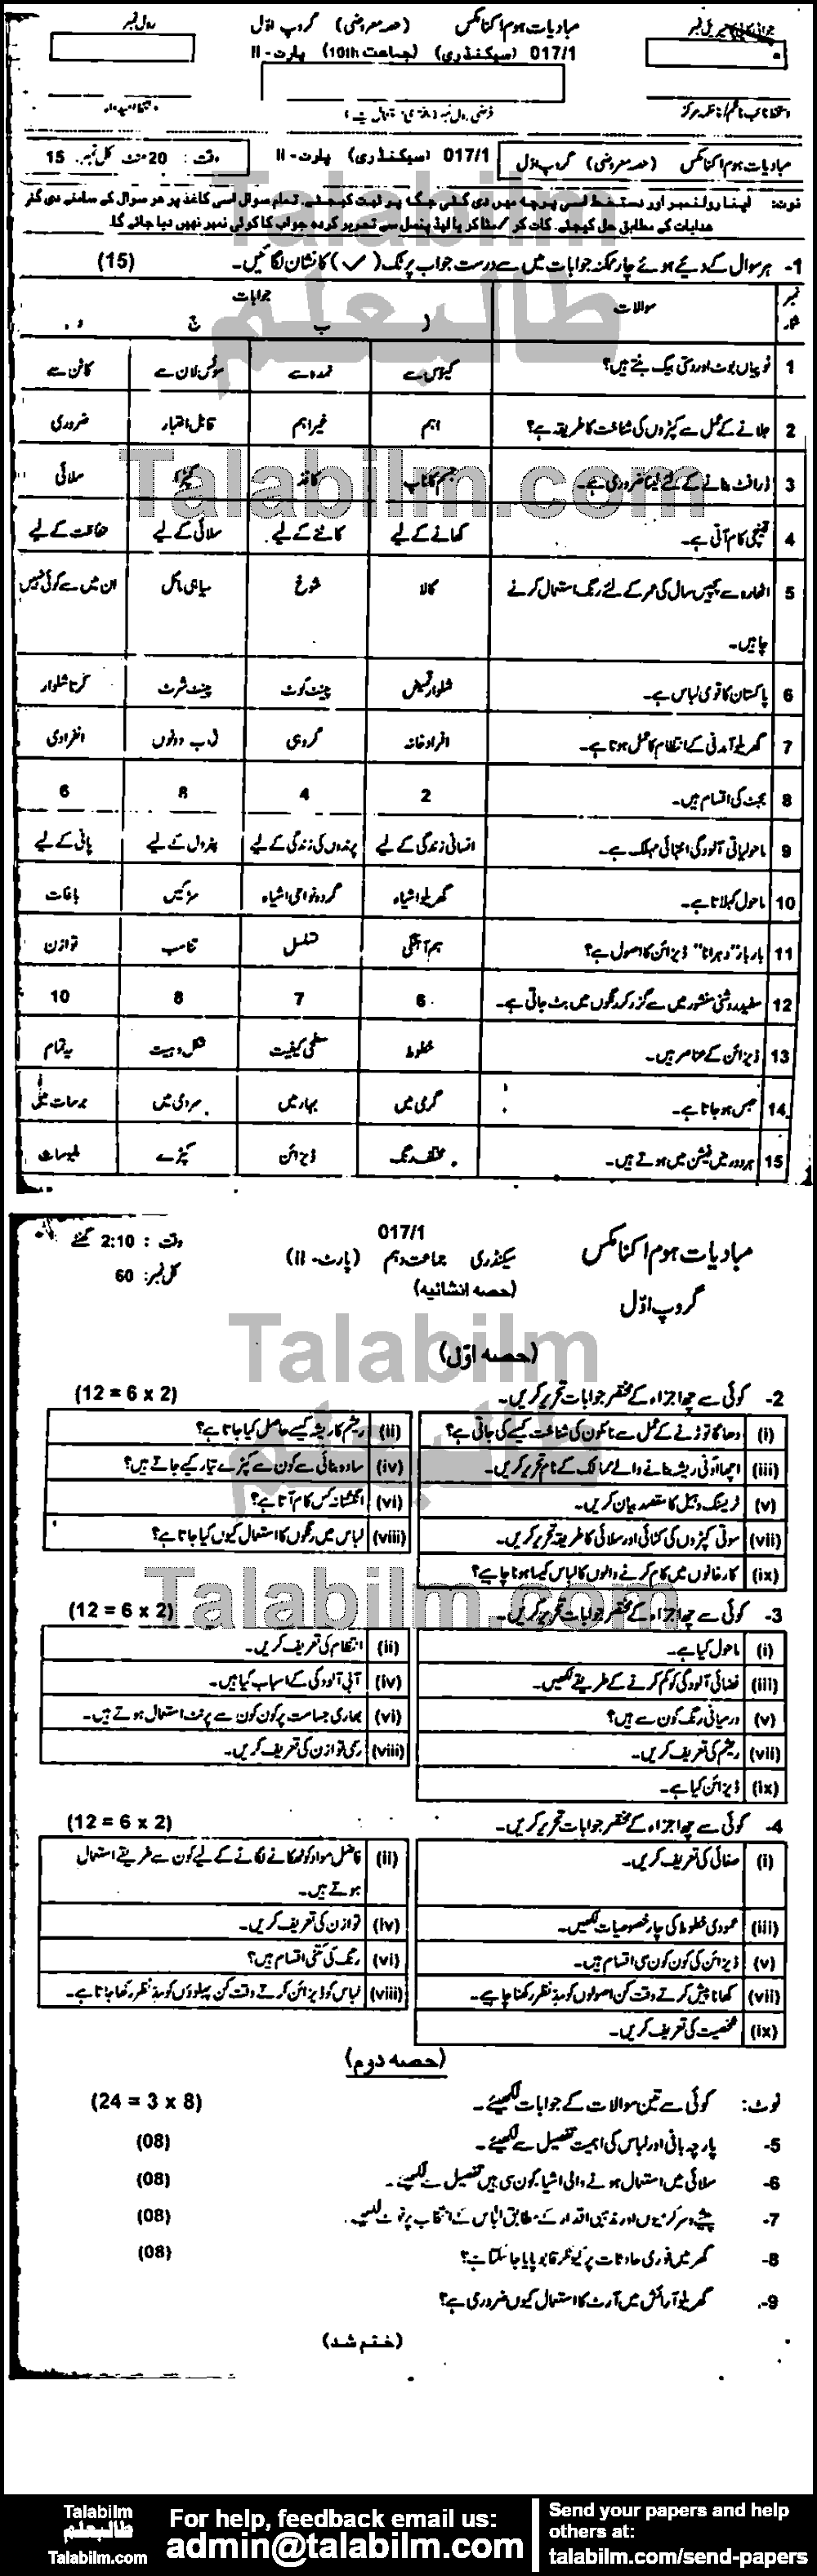 رول نمبر
مبادیات ہوم اکنامکس (حصہ معروضی) گروپ اوّل
017/1 (سیکنڈری) (جماعت 10th) پارٹ - II
مبادیات ہوم اکنامکس (حصہ معروضی) گروپ اوّل 017/1 (سیکنڈری) پارٹ - II وقت : 20 منٹ کل نمبر: 15
نوٹ: اپنا رولنمبر اور دستخط اسی پرچہ میں دی گئی جگہ پر ثبت کیجئے۔ تمام سوال اسی کاغذ پر ہر سوال کے سامنے دی گئر
ہدایات کے مطابق حل کیجئے۔ کاٹ کر / مٹا کر یا لیڈ پنسل سے تحریر کردہ جواب کا کوئی نمبر نہیں دیا جائے گا۔
1- ہر سوال کے دیئے ہوئے چار ممکنہ جوابات میں سے درست جواب پر ٹک (✓) کا نشان لگائیں۔ (15)
نمبر شمار سوالات جوابات
ا ب ج د
1 ٹوپیاں بوٹ اور دستی بیگ بنتے ہیں؟ کینوس سے نمدہ سے سوئس لان سے کاٹن سے
2 جلانے کے عمل سے کپڑوں کی شناخت کا طریقہ ہے؟ اہم غیر اہم قابل اعتبار ضروری
3 ڈرافٹ بنانے کے لئے لینا ضروری ہے۔ جسم کا ناپ کاغذ کپڑا سلائی
4 قینچی کام آتی ہے۔ کھانے کے لیے کاٹنے کے لیے سلائی کے لیے حفاظت کے لیے
5 اٹھارہ سے پچیس سال کی عمر کے لئے رنگ استعمال کرنے چاہیں۔ کالا شوخ سیاہی مائل ان میں سے کوئی نہیں
6 پاکستان کا قومی لباس ہے۔ شلوار قمیض پینٹ کوٹ پینٹ شرٹ کرتا شلوار
7 گھریلو آمدنی کے انتظام کا عمل ہوتا ہے۔ افراد خانہ گروہی ا، ب دونوں انفرادی
8 بجٹ کی اقسام ہیں۔ 2 4 8 6
9 ماحولیاتی آلودگی انتہائی مہلک ہے۔ انسانی زندگی کے لیے پرندوں کی زندگی کے لیے پٹرول کے لیے پانی کے لیے
10 ماحول کہلاتا ہے۔ گھریلو اشیاء گردونواحی اشیاء سڑکیں باغات
11 بار بار "دہرانا" ڈیزائن کا اصول ہے؟ ہم آہنگی تسلسل تناسب توازن
12 سفید روشنی منشور میں سے گزر کر رنگوں میں بٹ جاتی ہے۔ 6 7 8 10
13 ڈیزائن کے عناصر ہیں۔ خطوط سطحی کیفیت شکل وہیت یہ تمام
14 حبس ہو جاتا ہے۔ گرمی میں بہار میں سردی میں برسات میں
15 ہر دور میں فیشن میں ہوتے ہیں۔ مختلف رنگ ڈیزائن کپڑے ملبوسات
مبادیات ہوم اکنامکس 017/1 وقت : 2:10 گھنٹے
گروپ اوّل سیکنڈری جماعت دہم (پارٹ - II) کل نمبر: 60
(حصہ انشائیہ)
(حصہ اوّل)
2- کوئی سے چھ اجزاء کے مختصر جوابات تحریر کریں۔ (12 = 6 x 2)
(i) دھاگا توڑنے کے عمل سے نائلون کی شناخت کیسے کی جاتی ہے؟
(ii) ریشم کا ریشہ کیسے حاصل کیا جاتا ہے؟
(iii) اچھا اونی ریشہ بنانے والے ممالک کے نام تحریر کریں۔
(iv) سادہ بنائی سے کون سے کپڑے تیار کیے جاتے ہیں؟
(v) ٹریسنگ وہیل کا مقصد بیان کریں۔
(vi) انگشتانہ کس کام آتا ہے؟
(vii) سوتی کپڑوں کی کٹائی اور سلائی کا طریقہ تحریر کریں۔
(viii) لباس میں رنگوں کا استعمال کیوں کیا جاتا ہے؟
(ix) کارخانوں میں کام کرنے والوں کا لباس کیسا ہونا چاہیے؟
3- کوئی سے چھ اجزاء کے مختصر جوابات تحریر کریں۔ (12 = 6 x 2)
(i) ماحول کیا ہے۔
(ii) انتظام کی تعریف کریں۔
(iii) فضائی آلودگی کو کم کرنے کے طریقے لکھیں۔
(iv) آبی آلودگی کے اسباب کیا ہیں۔
(v) درمیانی رنگ کون سے ہیں؟
(vi) بھاری جسامت پر کون کون سے پرنٹ استعمال ہوتے ہیں۔
(vii) ریشم کی تعریف کریں۔
(viii) رسمی توازن کی تعریف کریں۔
(ix) ڈیزائن کیا ہے۔
4- کوئی سے چھ اجزاء کے مختصر جوابات تحریر کریں۔ (12 = 6 x 2)
(i) صفائی کی تعریف کریں۔
(ii) فاضل مواد کو ٹھکانے لگانے کے لیے کون سے طریقے استعمال ہوتے ہیں۔
(iii) عمودی خطوط کی چار خصوصیات لکھیں۔
(iv) توازن کی تعریف کریں۔
(v) ڈیزائن کی کون کون سی اقسام ہیں۔
(vi) رنگ کی کتنی اقسام ہیں؟
(vii) کھانا پیش کرتے وقت کن اصولوں کو مدِنظر رکھنا چاہیے۔
(viii) لباس کو ڈیزائن کرتے وقت کن پہلوؤں کو مدِنظر رکھا جاتا ہے۔
(ix) شخصیت کی تعریف کریں۔
(حصہ دوم)
نوٹ: کوئی سے تین سوالات کے جوابات لکھیئے۔ (24 = 3 x 8)
5- پارچہ بافی اور لباس کی اہمیت تفصیل سے لکھیئے۔ (08)
6- سلائی میں استعمال ہونے والی اشیا کون سی ہیں تفصیل سے لکھیئے۔ (08)
7- پیشے، سرگرمیوں اور مذہبی اقدار کے مطابق لباس کے انتخاب پر نوٹ لکھیں۔ (08)
8- گھر میں فوری حادثات پر کیونکر قابو پایا جا سکتا ہے؟ (08)
9- گھریلو آرائش میں آرٹ کا استعمال کیوں ضروری ہے؟
(ختم شد)
Talabilm
طالبعلم
Talabilm.com
Talabilm
طالبعلم
Talabilm.com
Talabilm
طالبعلم
Talabilm.com
For help, feedback email us:
admin@talabilm.com
Send your papers and help
others at:
talabilm.com/send-papers